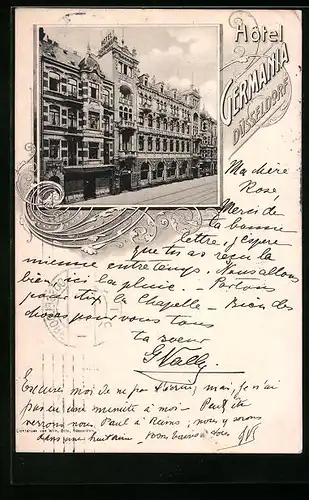 Hôtel
GERMANIA
DÜSSELDORF
Ma chère
Rosé,
Merci de
ta bonne
lettre, j'espère
que tu as reçu la
mienne entre temps. Nous allons
bien, ici la pluie. — Partons
pour Aix la Chapelle — Bien des
choses pour vous tous
ta soeur
Excuses moi de ne pas t'écrire, mais je n'ai
pas eu une minute à moi — Peut être
verrons nous Paul à Reims, nous y serons
dans une huitaine — bons baisers à tous